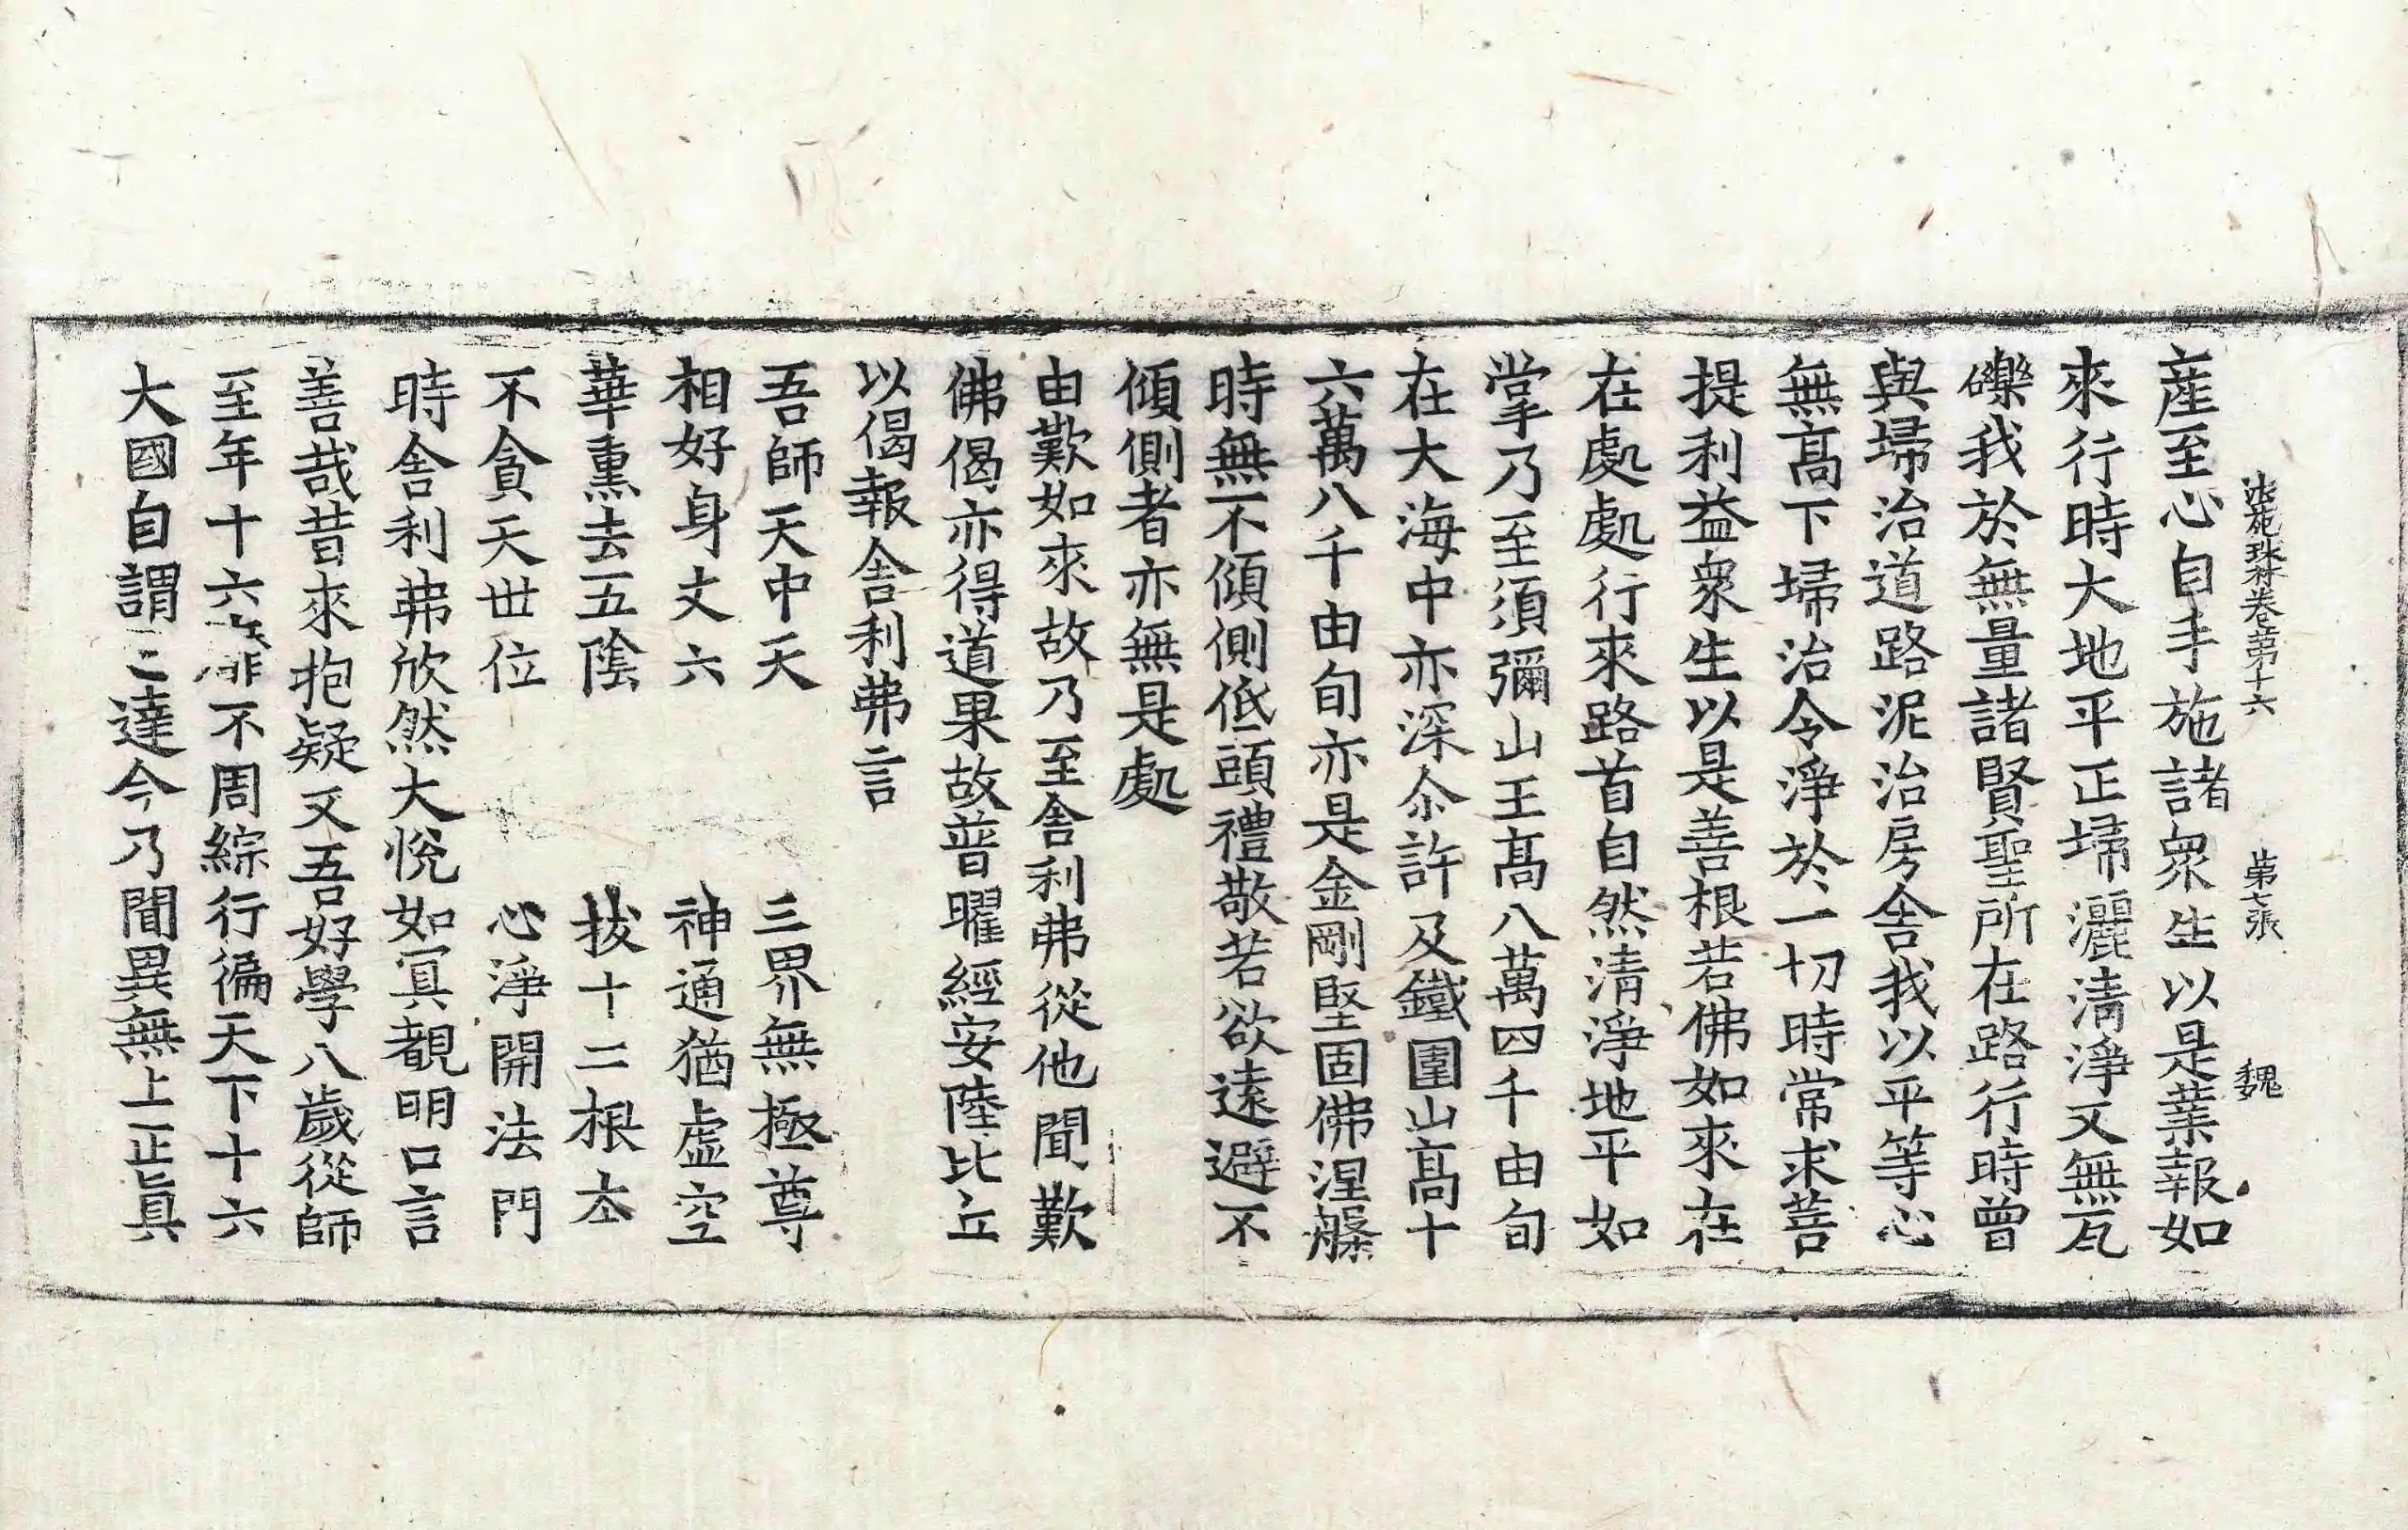 法苑珠林卷第十六 第七張 魏
産至心自手施諸衆生以是業報如
來行時大地平正埽灑清淨又無瓦
礫我於無量諸賢聖所在路行時曾
與埽治道路泥治房舍我以平等心
無高下埽治令淨於一切時常求菩
提利益衆生以是善根若佛如來在
在處處行來路首自然清淨地平如
掌乃至須彌山王高八萬四千由旬
在大海中亦深尒許及鐵圍山高十
六萬八千由旬亦是金剛堅固佛涅槃
時無不傾側低頭禮敬若欲遠避不
傾側者亦無是處
由歎如來故乃至舍利弗從他聞歎
佛偈亦得道果故普曜經安陸比丘
以偈報舍利弗言
吾師天中天 三界無極尊
相好身丈六 神通猶虛空
華熏去五陰 拔十二根夲
不貪天世位 心淨開法門
時舍利弗欣然大悅如冥覩明口言
善哉昔來抱疑又吾好學八歲從師
至年十六靡不周綜行徧天下十六
大國自謂已達今乃聞異無上正眞